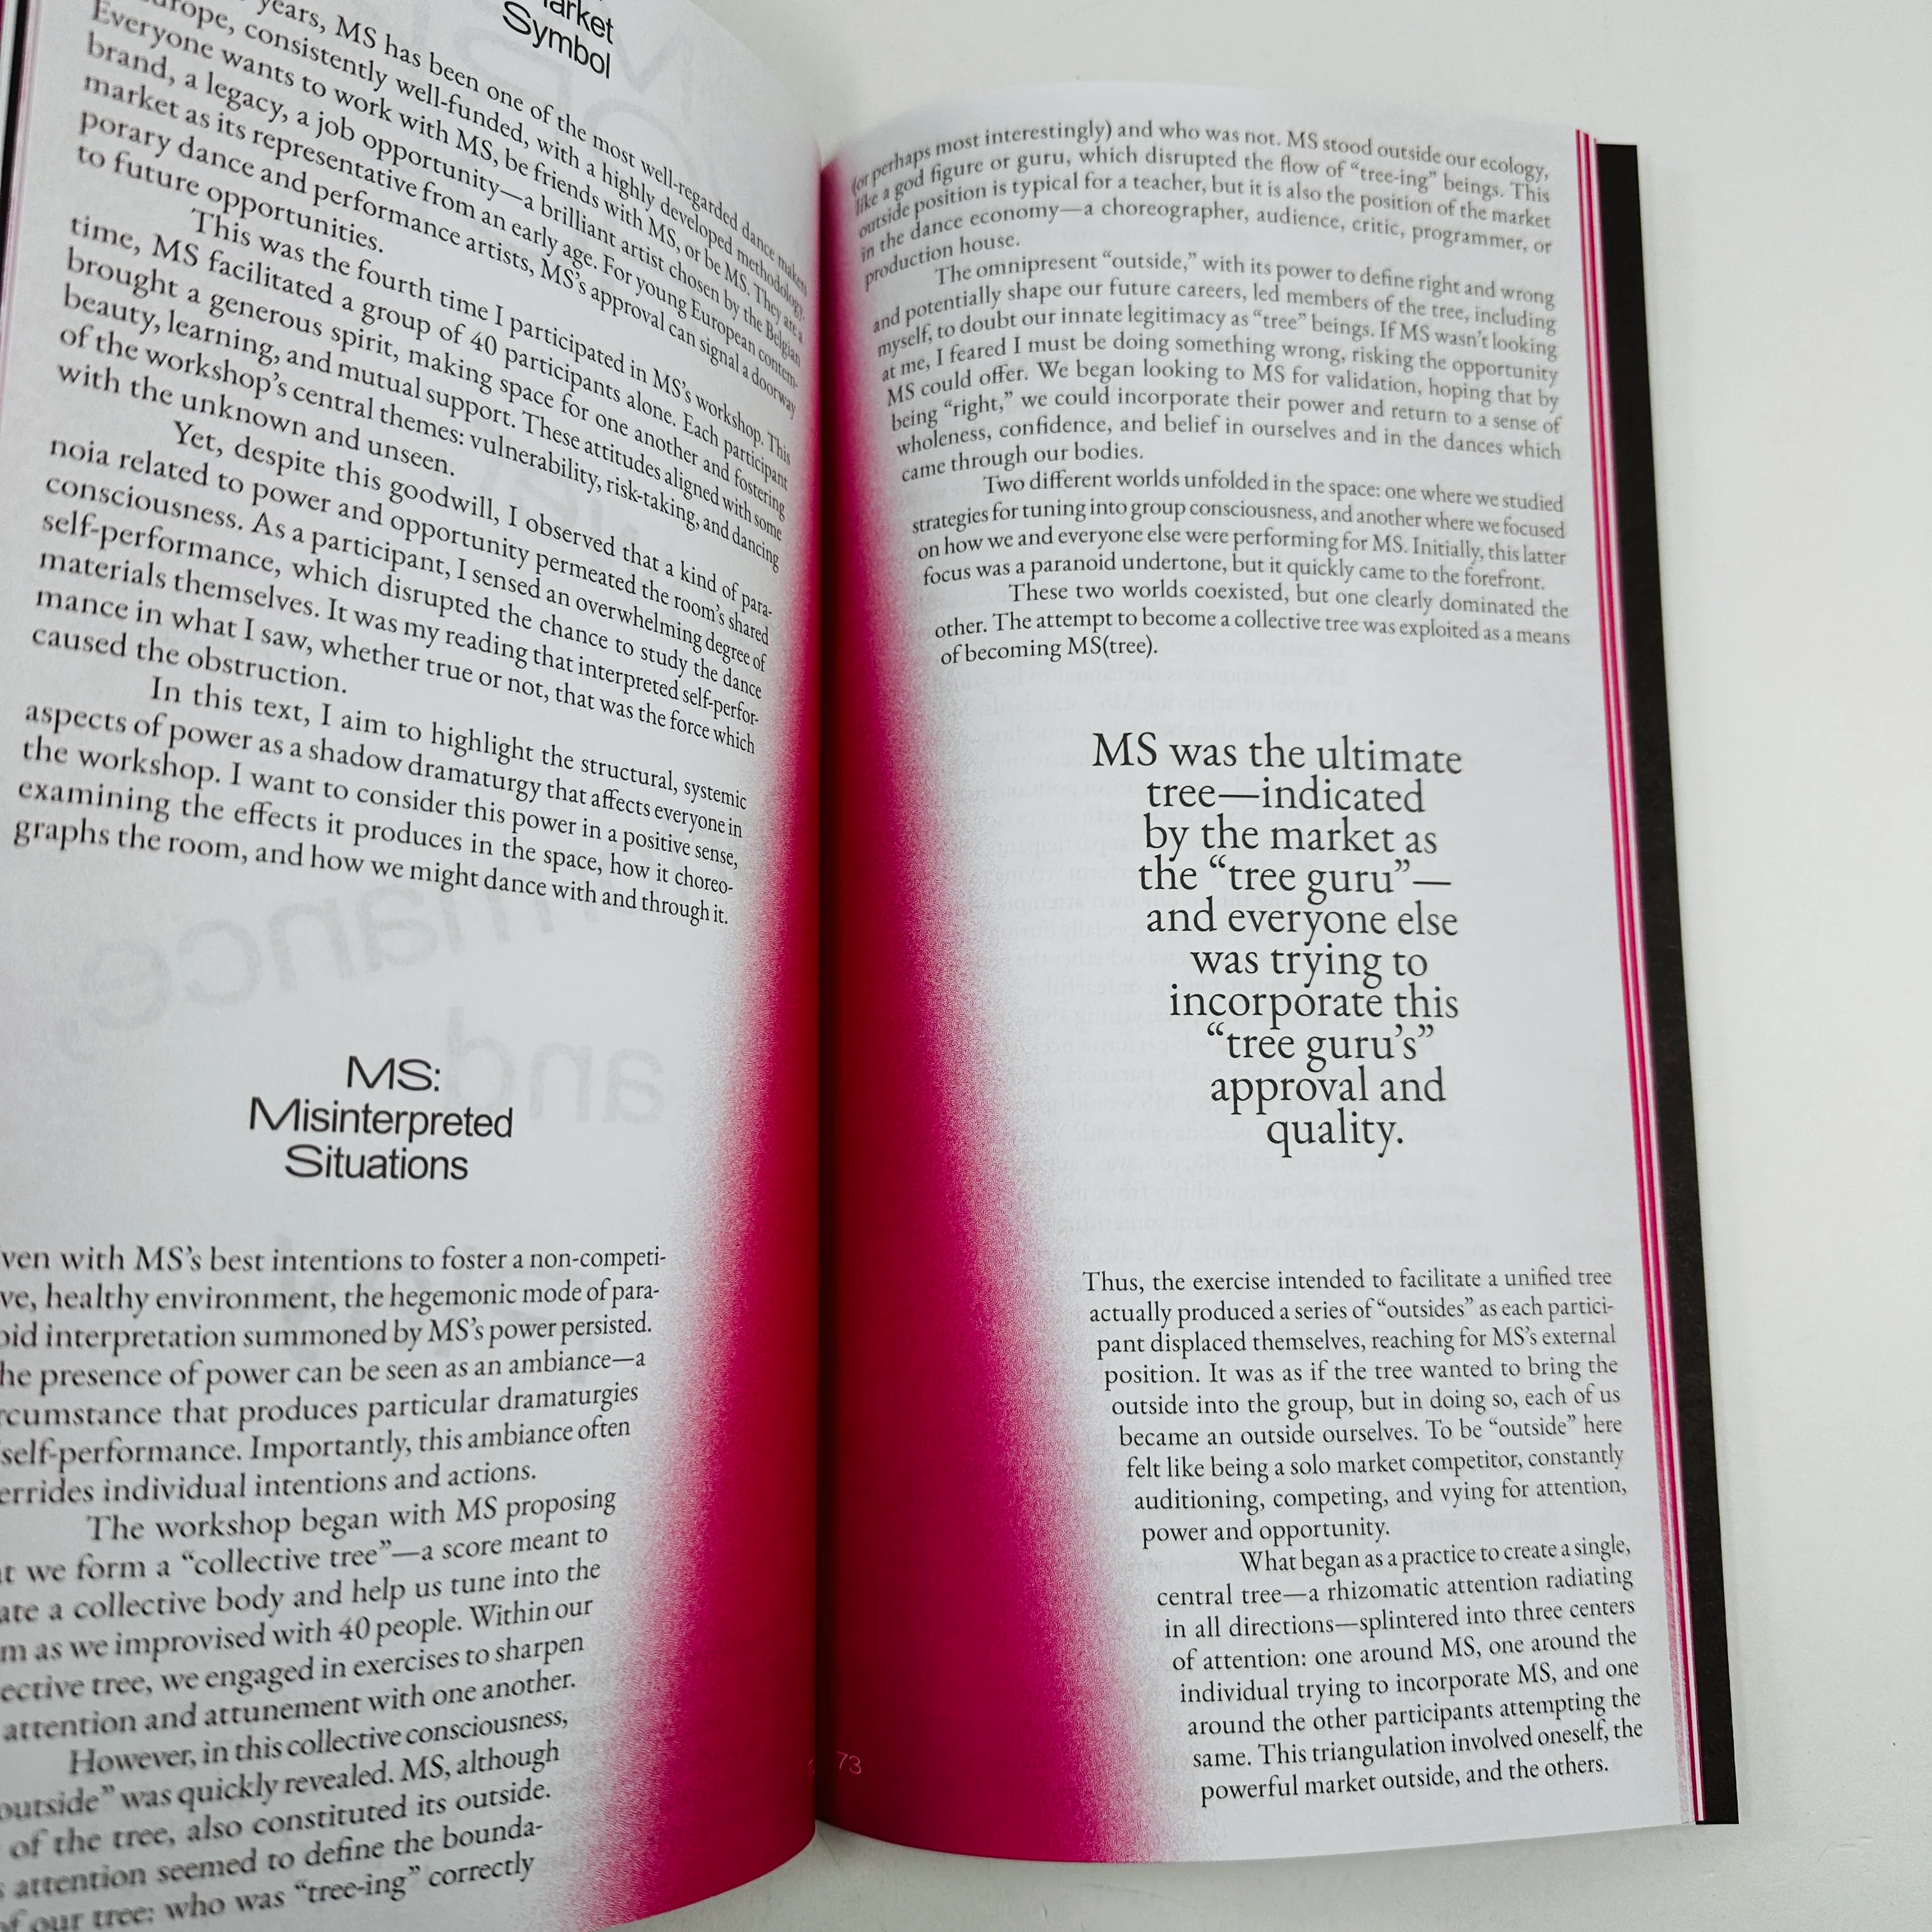 arket
Symbol
years, MS has been one of the most well-regarded dance makers
urope, consistently well-funded, with a highly developed methodology.
Everyone wants to work with MS, be friends with MS, or be MS. They are a
brand, a legacy, a job opportunity—a brilliant artist chosen by the Belgian
market as its representative from an early age. For young European contem-
porary dance and performance artists, MS’s approval can signal a doorway
to future opportunities.
This was the fourth time I participated in MS’s workshop. This
time, MS facilitated a group of 40 participants alone. Each participant
brought a generous spirit, making space for one another and fostering
beauty, learning, and mutual support. These attitudes aligned with some
of the workshop’s central themes: vulnerability, risk-taking, and dancing
with the unknown and unseen.
Yet, despite this goodwill, I observed that a kind of para-
noia related to power and opportunity permeated the room’s shared
consciousness. As a participant, I sensed an overwhelming degree of
self-performance, which disrupted the chance to study the dance
materials themselves. It was my reading that interpreted self-perfor-
mance in what I saw, whether true or not, that was the force which
caused the obstruction.
In this text, I aim to highlight the structural, systemic
aspects of power as a shadow dramaturgy that affects everyone in
the workshop. I want to consider this power in a positive sense,
examining the effects it produces in the space, how it choreo-
graphs the room, and how we might dance with and through it.
MS:
Misinterpreted
Situations
ven with MS’s best intentions to foster a non-competi-
ve, healthy environment, the hegemonic mode of para-
oid interpretation summoned by MS’s power persisted.
he presence of power can be seen as an ambiance—a
rcumstance that produces particular dramaturgies
self-performance. Importantly, this ambiance often
errides individual intentions and actions.
The workshop began with MS proposing
t we form a “collective tree”—a score meant to
ate a collective body and help us tune into the
m as we improvised with 40 people. Within our
ective tree, we engaged in exercises to sharpen
attention and attunement with one another.
However, in this collective consciousness,
outside” was quickly revealed. MS, although
of the tree, also constituted its outside.
s attention seemed to define the bounda-
of our tree: who was “tree-ing” correctly
(or perhaps most interestingly) and who was not. MS stood outside our ecology,
like a god figure or guru, which disrupted the flow of “tree-ing” beings. This
outside position is typical for a teacher, but it is also the position of the market
in the dance economy—a choreographer, audience, critic, programmer, or
production house.
The omnipresent “outside,” with its power to define right and wrong
and potentially shape our future careers, led members of the tree, including
myself, to doubt our innate legitimacy as “tree” beings. If MS wasn’t looking
at me, I feared I must be doing something wrong, risking the opportunity
MS could offer. We began looking to MS for validation, hoping that by
being “right,” we could incorporate their power and return to a sense of
wholeness, confidence, and belief in ourselves and in the dances which
came through our bodies.
Two different worlds unfolded in the space: one where we studied
strategies for tuning into group consciousness, and another where we focused
on how we and everyone else were performing for MS. Initially, this latter
focus was a paranoid undertone, but it quickly came to the forefront.
These two worlds coexisted, but one clearly dominated the
other. The attempt to become a collective tree was exploited as a means
of becoming MS(tree).
MS was the ultimate
tree—indicated
by the market as
the “tree guru”—
and everyone else
was trying to
incorporate this
“tree guru’s”
approval and
quality.
Thus, the exercise intended to facilitate a unified tree
actually produced a series of “outsides” as each partici-
pant displaced themselves, reaching for MS’s external
position. It was as if the tree wanted to bring the
outside into the group, but in doing so, each of us
became an outside ourselves. To be “outside” here
felt like being a solo market competitor, constantly
auditioning, competing, and vying for attention,
power and opportunity.
What began as a practice to create a single,
central tree—a rhizomatic attention radiating
in all directions—splintered into three centers
of attention: one around MS, one around the
individual trying to incorporate MS, and one
around the other participants attempting the
same. This triangulation involved oneself, the
powerful market outside, and the others.
73